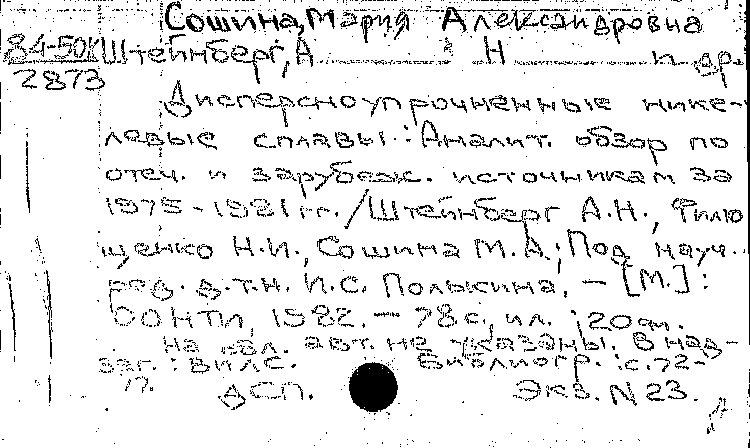 Сошина, Мария Александровна
84-50К Штейнберг, А Н и др.
2873
Дисперсноупрочненные нике-
левые сплавы: Аналит. обзор по
отеч. и зарубеж. источникам за
1975-1981 гг. / Штейнберг А.Н., Филю
щенко Н.И., Сошина М.А.; Под науч.
ред. д.т.н. И.С. Полькина. — [М.]:
ОНТИ, 1982. — 78 с., ил.; 20 см.
На авт. не указаны. В над-
заг.: ВИЛС. Библиогр.: с. 72-
ДСП. Экз. N 23.